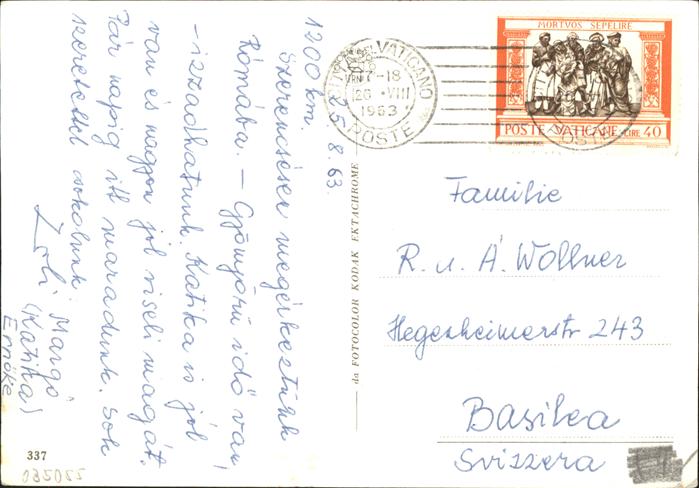 1200 km. 25. 8. 63.
Szerencsésen megérkeztünk
Rómába. – Gyönyörű idő van
– izzadhatunk. Katika is jól
van és nagyon jól viseli magát.
Pár napig itt maradunk. Sok
szeretettel csókolunk
Zoli Margó
(Katika)
Emőke
337
035055
da FOTOCOLOR KODAK EKTACHROME
VATICANO
-18
26 VIII
1963
POSTE
MORTVOS SEPELIRE
POSTE VATICANE LIRE 40
Familie
R. u. Á. Wollner
Hegenheimerstr 243
Basilea
Svizzera